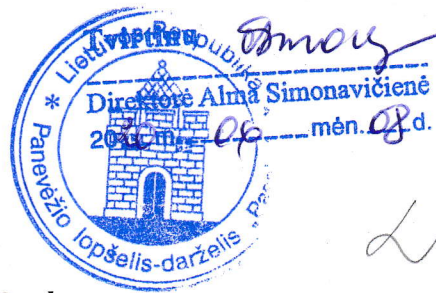 Tvirtinu
Direktorė Alma Simonavičienė
2020 m. 06 mėn. 08 d.
* Lietuvos Respublika
Panevėžio lopšelis-darželis